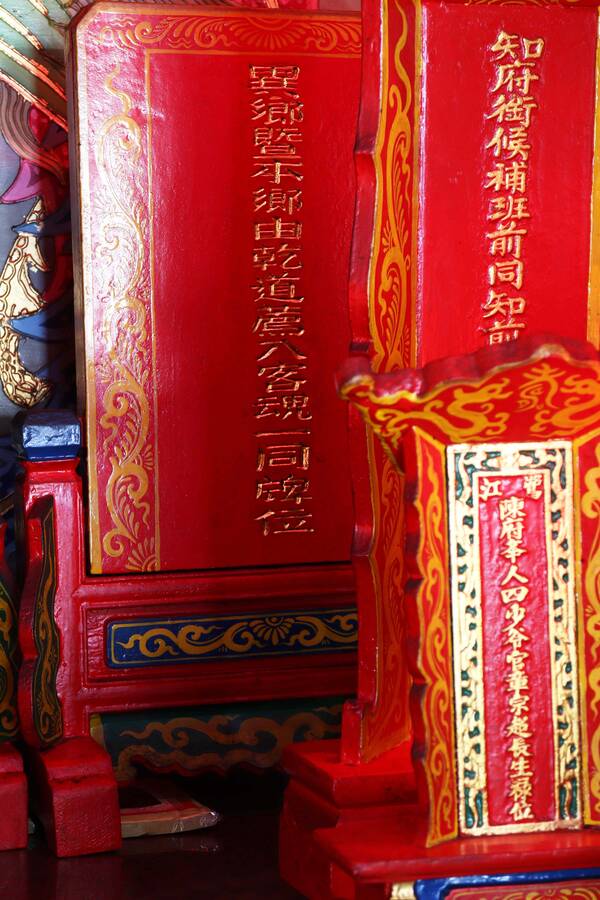 知府銜候補班前同知前
鷺江
陳府峯人四少爺官章宗超長生祿位
異鄉暨本鄉由乾道薦入客魂一同牌位